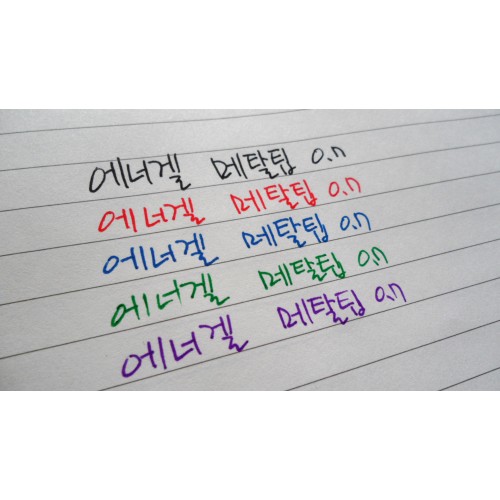 에너겔 메탈팁 0.7
에너겔 메탈팁 0.7
에너겔 메탈팁 0.7
에너겔 메탈팁 0.7
에너겔 메탈팁 0.7